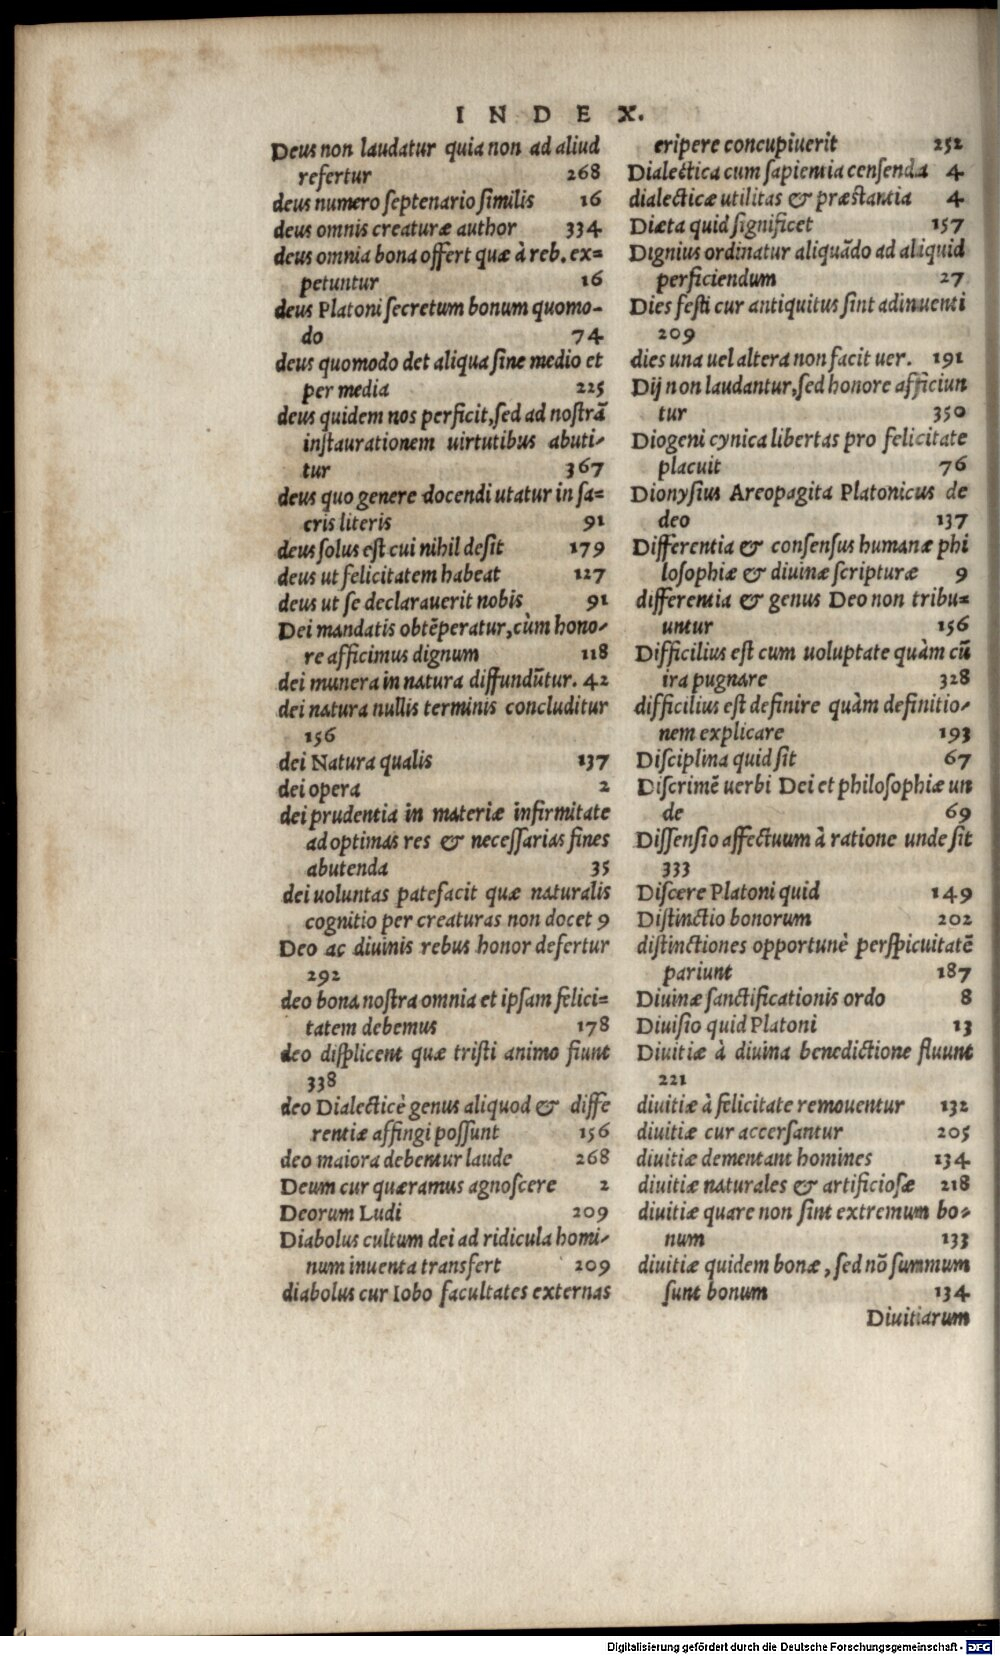 INDEX.
Deus non laudatur quia non ad aliud
refertur 268
deus numero septenario similis 16
deus omnis creaturæ author 334
deus omnia bona offert quæ à reb. ex=
petuntur 16
deus Platoni secretum bonum quomo-
do 74
deus quomodo det aliqua sine medio et
per media 225
deus quidem nos perficit, sed ad nostrā
instaurationem uirtutibus abuti-
tur 367
deus quo genere docendi utatur in sa=
cris literis 91
deus solus est cui nihil desit 179
deus ut felicitatem habeat 127
deus ut se declarauerit nobis 91
Dei mandatis obtēperatur, cùm hono-
re afficimus dignum 118
dei munera in natura diffundūtur. 42
dei natura nullis terminis concluditur
156
dei Natura qualis 137
dei opera 2
dei prudentia in materiæ infirmitate
ad optimas res & necessarias fines
abutenda 35
dei uoluntas patefacit quæ naturalis
cognitio per creaturas non docet 9
Deo ac diuinis rebus honor defertur
292
deo bona nostra omnia et ipsam felici=
tatem debemus 178
deo displicent quæ tristi animo fiunt
338
deo Dialecticè genus aliquod & diffe
rentiæ affingi possunt 156
deo maiora debentur laude 268
Deum cur quæramus agnoscere 2
Deorum Ludi 209
Diabolus cultum dei ad ridicula homi-
num inuenta transfert 209
diabolus cur Iobo facultates externas
eripere concupiuerit 252
Dialectica cum sapientia censenda 4
dialecticæ utilitas & præstantia 4
Diæta quid significet 157
Dignius ordinatur aliquādo ad aliquid
perficiendum 27
Dies festi cur antiquitus sint adinuenti
209
dies una uel altera non facit uer. 191
Dij non laudantur, sed honore afficiun
tur 350
Diogeni cynica libertas pro felicitate
placuit 76
Dionysius Areopagita Platonicus de
deo 137
Differentia & consensus humanæ phi
losophiæ & diuinæ scripturæ 9
differentia & genus Deo non tribu=
untur 156
Difficilius est cum uoluptate quàm cū
ira pugnare 328
difficilius est definire quàm definitio-
nem explicare 193
Disciplina quid sit 67
Discrimē uerbi Dei et philosophiæ un
de 69
Dissensio affectuum à ratione unde sit
333
Discere Platoni quid 149
Distinctio bonorum 202
distinctiones opportunè perspicuitatē
pariunt 187
Diuinæ sanctificationis ordo 8
Diuisio quid Platoni 13
Diuitiæ à diuina benedictione fluunt
221
diuitiæ à felicitate remouentur 132
diuitiæ cur accersantur 205
diuitiæ dementant homines 134
diuitiæ naturales & artificiosæ 218
diuitiæ quare non sint extremum bo-
num 133
diuitiæ quidem bonæ, sed nō summum
sunt bonum 134
Diuitiarum
Digitalisierung gefördert durch die Deutsche Forschungsgemeinschaft - DFG